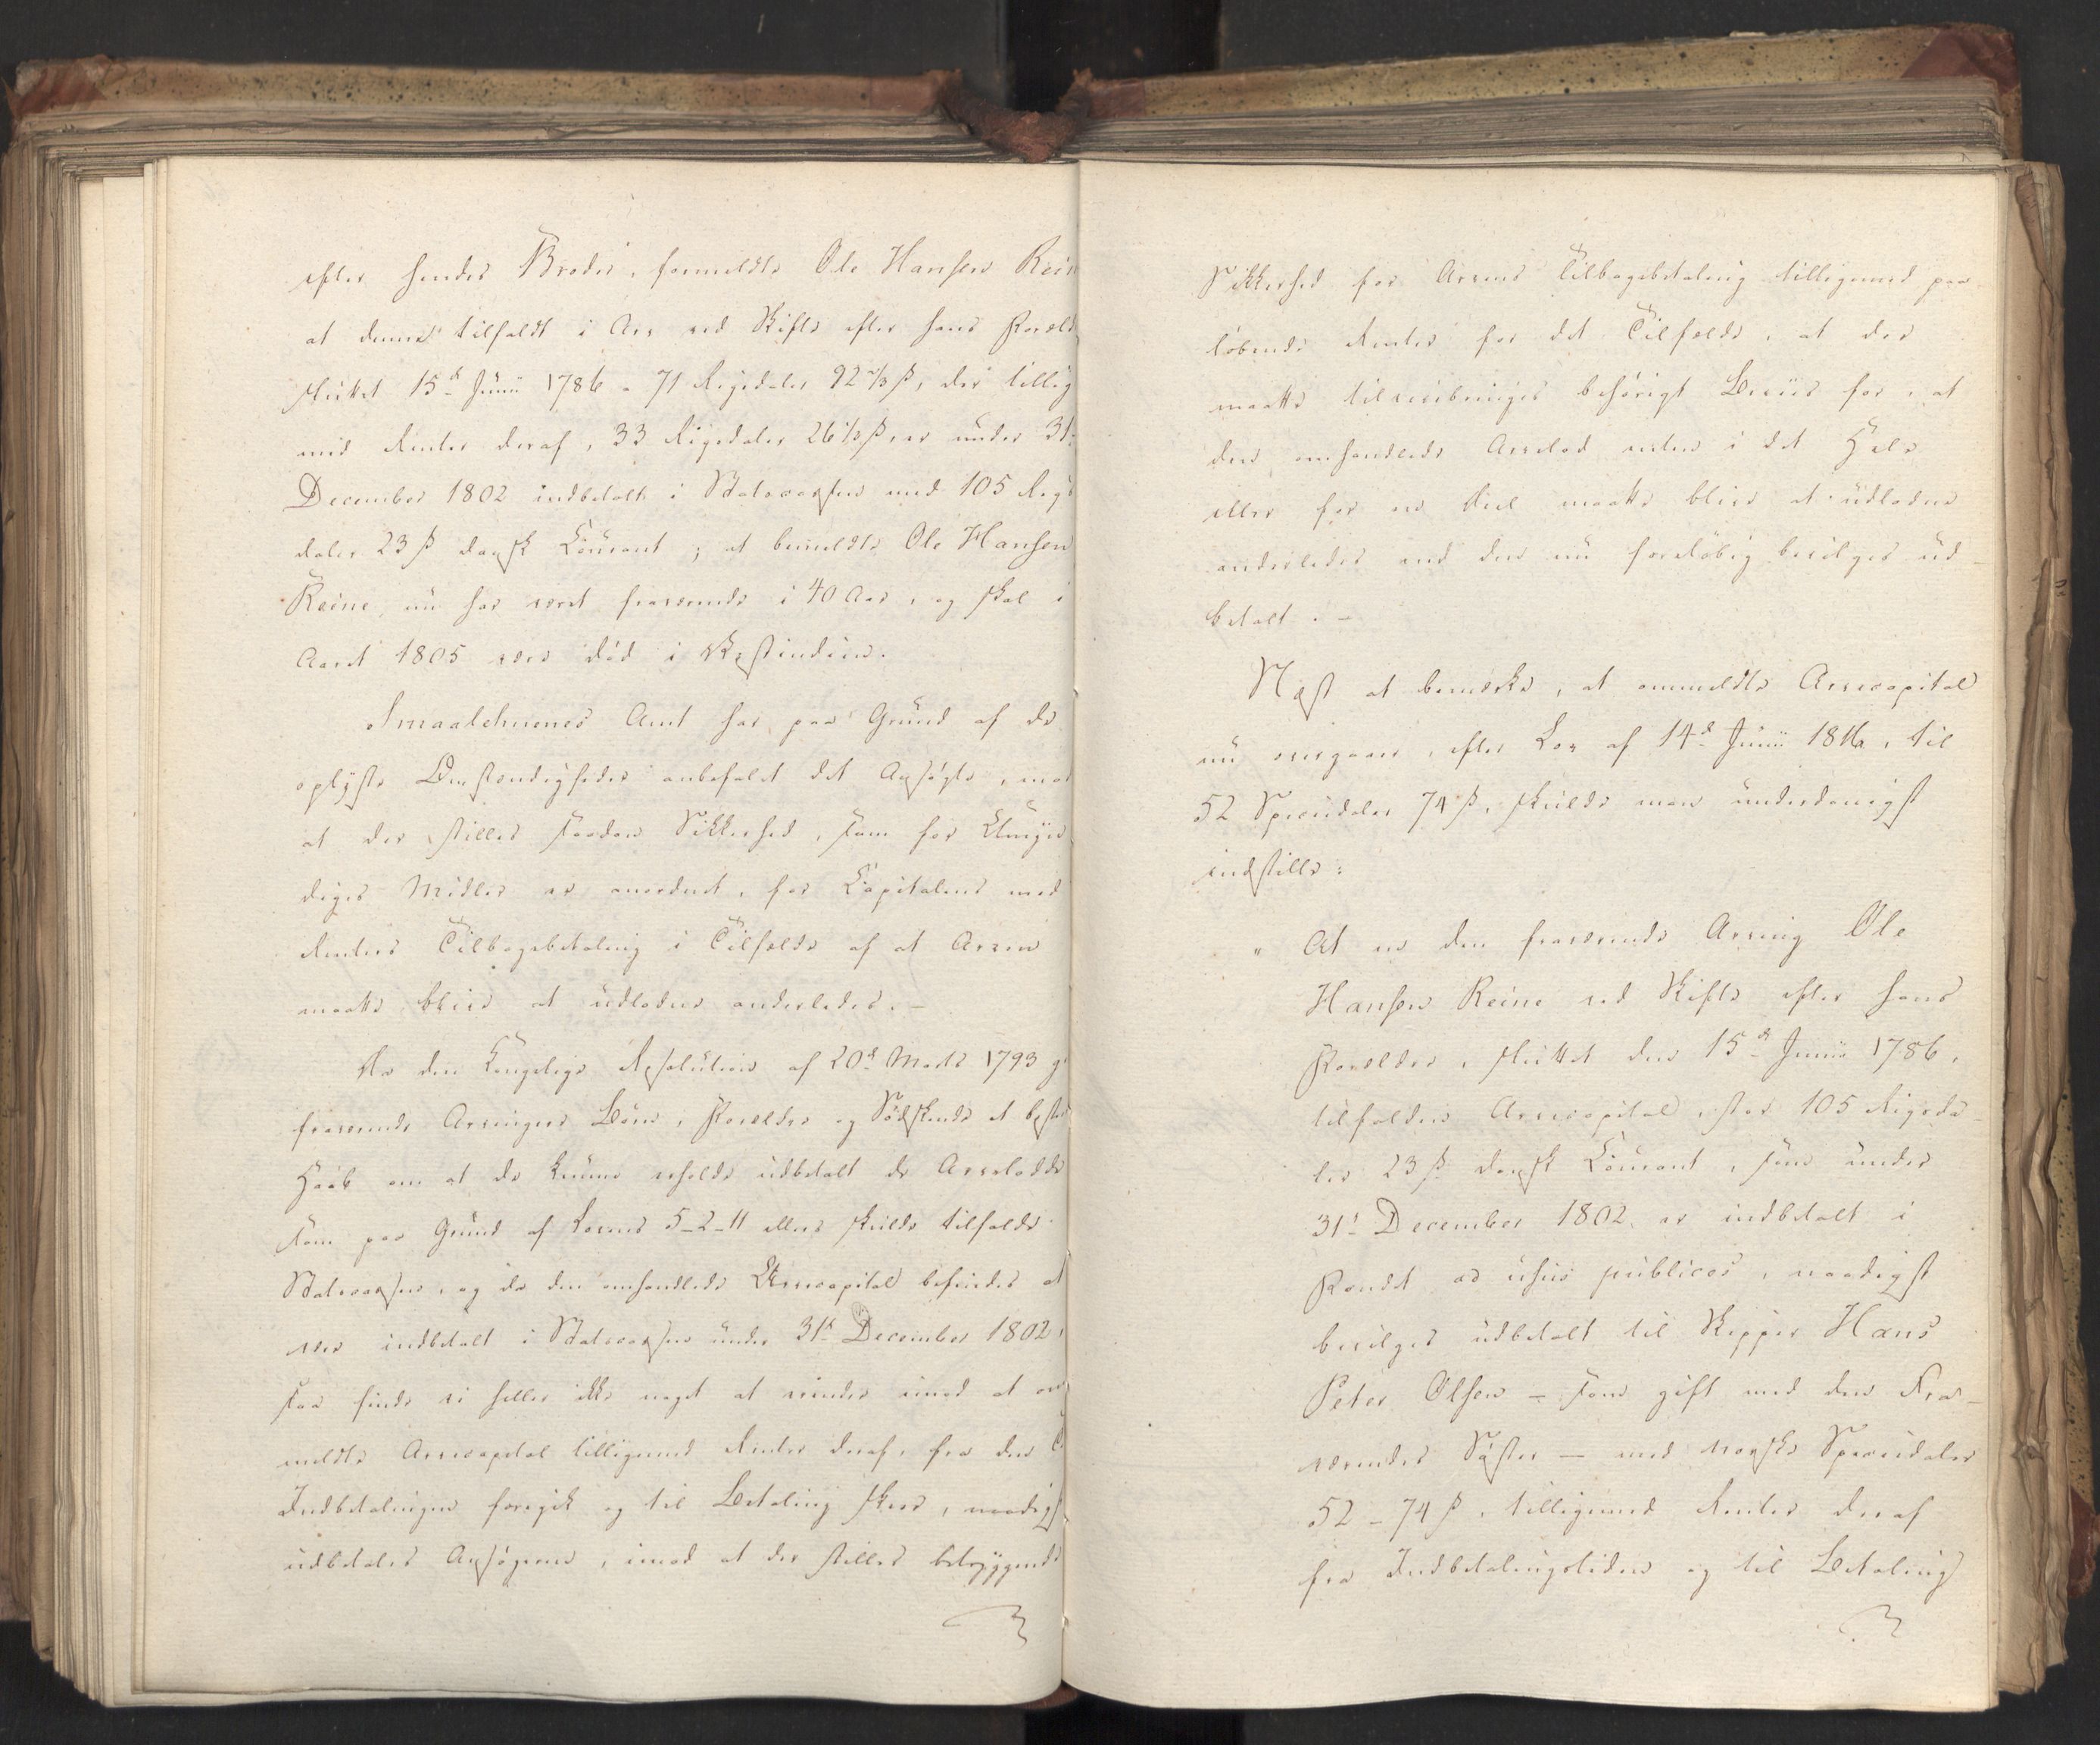 efter hendes Broder, formeldte Ole Hansen Rein
at denne tilfaldt i Arv ved Skifte efter hans Foræld
sluttet 15d Junii 1786 71 Rigsdaler 92 2/3 ß, der tillig
med Renter deraf, 33 Rigsdaler 26 1/3 ß, er under 31
December 1802 indbetalt i Statscassen med 105 Rigs
daler 23 ß dansk Courant; at bemeldte Ole Hansen
Reine nu har været fraværende i 40 Aar, og skal i
Aaret 1805 være død i Vestindien.
Smaalehnenes Amt har paa Grund af de
oplyste Omstændigheder anbefalet det Ansøgte, mod
at der stilles saadan Sikkerhed, som for Umyn
diges Midler er anordnet, for Capitalens med
Renters Tilbagebetaling i Tilfælde af at Arven
maatte blive at udlodne anderledes. -
Da den Kongelige Resolution af 20d Marts 1793 gi
fraværende Arvingers Børn, Forældre og Sødskende et bestem
Haab om at de kunne erholde udbetalt de Arvelodder
som paa Grund af Lovens 5-2-11 ellers skulde tilfalde
Statscassen, og da den omhandlede Arvecapital befindes at
være indbetalt i Statscassen under 31te December 1802,
saa finde vi heller ikke noget at erindre imod at om
meldte Arvecapital tilligemed Renter deraf, fra den
Indbetalingen foregik og til Betaling skeer, naadigst
udbetales Ansøgeren, imod at der stilles betryggende
Sikkerhed for Arvens Tilbagebetaling tilligemed paa
løbende Renter for det Tilfælde, at der
maatte tilveiebringes behørigt Beviis for, at
den omhandlede Arvelod enten i det Hele
eller for en Deel maatte blive at udlodne
anderledes end den nu foreløbig bevilges ud
betalt. -
Næst at bemærke, at ommeldte Arvecapital
nu overgaaer, efter Lov af 14d Junii 1816, til
52 Speciedaler 74 ß, skulde man underdanigst
indstille:
" At en den fraværende Arving Ole
Hansen Reine ved Skifte efter hans
Forældre, sluttet den 15d Junii 1786,
tilfalden Arvecapital, stor 105 Rigsda-
ler 23 ß dansk Courant, som under
31t December 1802 er indbetalt i
Fondet ad usus publicos, naadigst
bevilges udbetalt til Skipper Hans
Peter Olsen - som gift med den Fra-
værendes Søster - med norske Speciedaler
52 - 74 ß, tilligemed Renter deraf
fra Indbetalingstiden og til Betaling